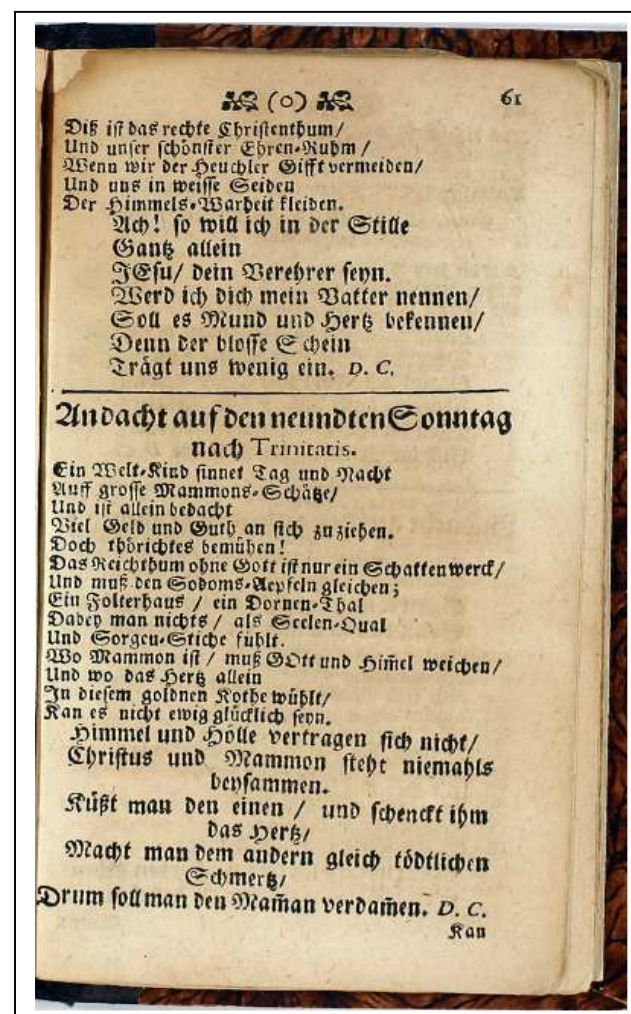 (o) 61
Diß ist das rechte Christenthum/
Und unser schönster Ehren-Ruhm /
Wenn wir der Heuchler Gifft vermeiden/
Und uns in weisse Seiden
Der Himmels-Warheit kleiden.
Ach! so will ich in der Stille
Gantz allein
JEsu/ dein Verehrer seyn.
Werd ich dich mein Vatter nennen/
Soll es Mund und Hertz bekennen/
Denn der blosse Schein
Trägt uns wenig ein. D. C.
Andacht auf den neundten Sonntag
nach Trinitatis.
Ein Welt-Kind sinnet Tag und Nacht
Auff grosse Mammons-Schätze/
Und ist allein bedacht
Viel Geld und Guth an sich zu ziehen.
Doch thörichtes bemühen!
Das Reichthum ohne Gott ist nur ein Schattenwerck/
Und muß den Sodoms-Aepfeln gleichen;
Ein Folterhaus / ein Dornen-Thal
Dabey man nichts / als Seelen-Qual
Und Sorgen-Stiche fühlt.
Wo Mammon ist / muß GOtt und Him̄el weichen/
Und wo das Hertz allein
In diesem goldnen Kothe wühlt/
Kan es nicht ewig glücklich seyn.
Himmel und Hölle vertragen sich nicht/
Christus und Mammon steht niemahls
beysammen.
Küßt man den einen / und schenckt ihm
das Hertz/
Macht man dem andern gleich tödtlichen
Schmertz/
Drum soll man den Mam̄an verdam̄en. D. C.
Kan